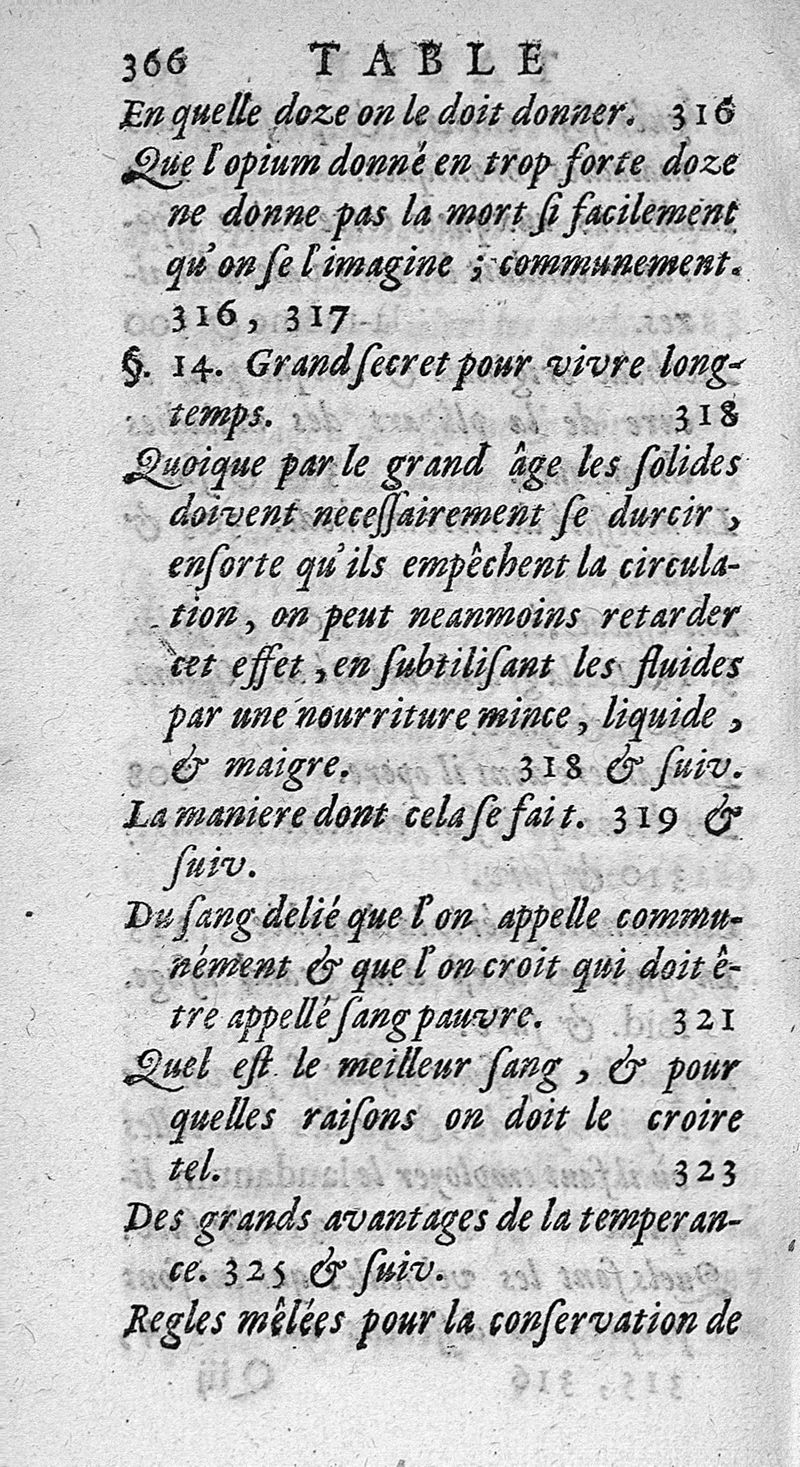 366 TABLE
En quelle doze on le doit donner. 316
Que l'opium donné en trop ſorte doze
ne donne pas la mort ſi facilement
qu'on ſe l'imagine ; communement.
316, 317
§. 14. Grand ſecret pour vivre long-
temps. 318
Quoique par le grand âge les ſolides
doivent neceſſairement ſe durcir,
enſorte qu'ils empêchent la circula-
tion, on peut neanmoins retarder
cet effet, en ſubtiliſant les fluides
par une nourriture mince, liquide,
& maigre. 318 & ſuiv.
La maniere dont cela ſe fait. 319 &
ſuiv.
Du ſang delié que l'on appelle commu-
nément & que l'on croit qui doit ê-
tre appellé ſang pauvre. 321
Quel eſt le meilleur ſang, & pour
quelles raiſons on doit le croire
tel. 323
Des grands avantages de la temperan-
ce. 325 & ſuiv.
Regles mêlées pour la conſervation de